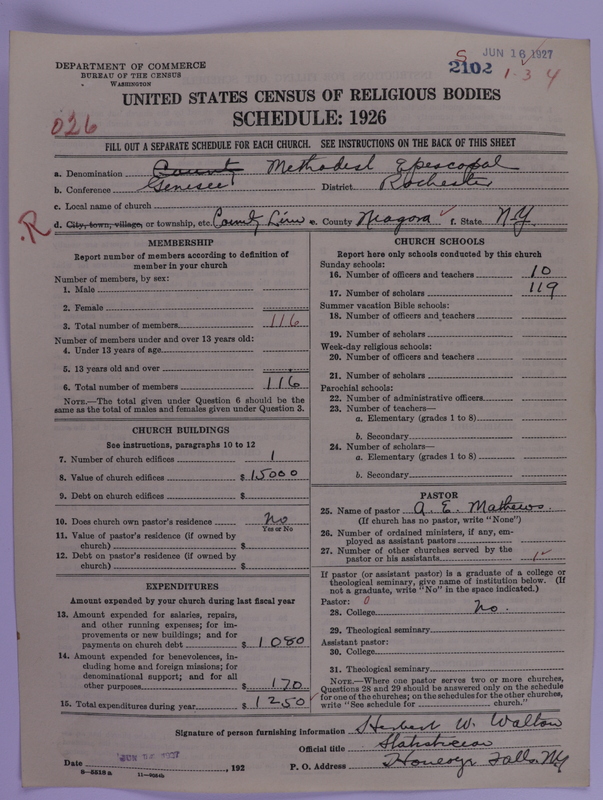 S JUN 16 1927
2102 1-3 4
DEPARTMENT OF COMMERCE
BUREAU OF THE CENSUS
WASHINGTON
UNITED STATES CENSUS OF RELIGIOUS BODIES
SCHEDULE: 1926
026
FILL OUT A SEPARATE SCHEDULE FOR EACH CHURCH. SEE INSTRUCTIONS ON THE BACK OF THIS SHEET
a. Denomination County Methodist Episcopal
b. Conference Genesee District Rochester
c. Local name of church
R d. City, town, village, or township, etc. County Line e. County Niagora f. State N.Y.
MEMBERSHIP
Report number of members according to definition of
member in your church
Number of members, by sex:
1. Male
2. Female
3. Total number of members 116
Number of members under and over 13 years old:
4. Under 13 years of age
5. 13 years old and over
6. Total number of members 116
NOTE.—The total given under Question 6 should be the
same as the total of males and females given under Question 3.
CHURCH BUILDINGS
See instructions, paragraphs 10 to 12
7. Number of church edifices 1
8. Value of church edifices $ 15000
9. Debt on church edifices $
10. Does church own pastor's residence No
Yes or No
11. Value of pastor's residence (if owned by
church) $
12. Debt on pastor's residence (if owned by
church) $
EXPENDITURES
Amount expended by your church during last fiscal year
13. Amount expended for salaries, repairs,
and other running expenses; for im-
provements or new buildings; and for
payments on church debt $ 1080
14. Amount expended for benevolences, in-
cluding home and foreign missions; for
denominational support; and for all
other purposes $ 170
15. Total expenditures during year $ 1250
CHURCH SCHOOLS
Report here only schools conducted by this church
Sunday schools:
16. Number of officers and teachers 10
17. Number of scholars 119
Summer vacation Bible schools:
18. Number of officers and teachers
19. Number of scholars
Week-day religious schools:
20. Number of officers and teachers
21. Number of scholars
Parochial schools:
22. Number of administrative officers
23. Number of teachers—
a. Elementary (grades 1 to 8)
b. Secondary
24. Number of scholars—
a. Elementary (grades 1 to 8)
b. Secondary
PASTOR
25. Name of pastor A. E. Mathews
(If church has no pastor, write "None")
26. Number of ordained ministers, if any, em-
ployed as assistant pastors
27. Number of other churches served by the
pastor or his assistants 1
If pastor (or assistant pastor) is a graduate of a college or
theological seminary, give name of institution below. (If
not a graduate, write "No" in the space indicated.)
Pastor: 0
28. College No.
29. Theological seminary
Assistant pastor:
30. College
31. Theological seminary
NOTE.—Where one pastor serves two or more churches,
Questions 28 and 29 should be answered only on the schedule
for one of the churches; on the schedules for the other churches,
write "See schedule for church."
Signature of person furnishing information Herbert W. Walton
Official title Statistician
Date , 192 P. O. Address Honeoye Falls, N.Y.
8—5518a 11—9064b